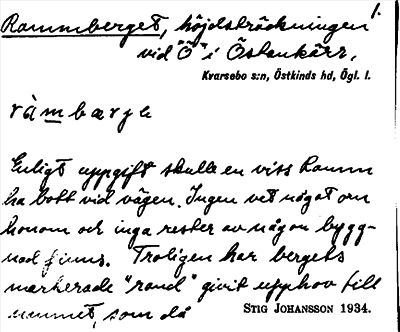 Rammberget, höjdsträckningen 1.
vid "Ö" i Östankärr.
Kvarsebo s:n, Östkinds hd, Ögl. l.
ràmbærje
Enligt uppgift skulle en viss Ramm
ha bott vid vägen. Ingen vet något om
honom och inga rester av någon bygg-
nad finns. Troligen har bergets
markerade "rand" givit upphov till
namnet, som då
STIG JOHANSSON 1934.